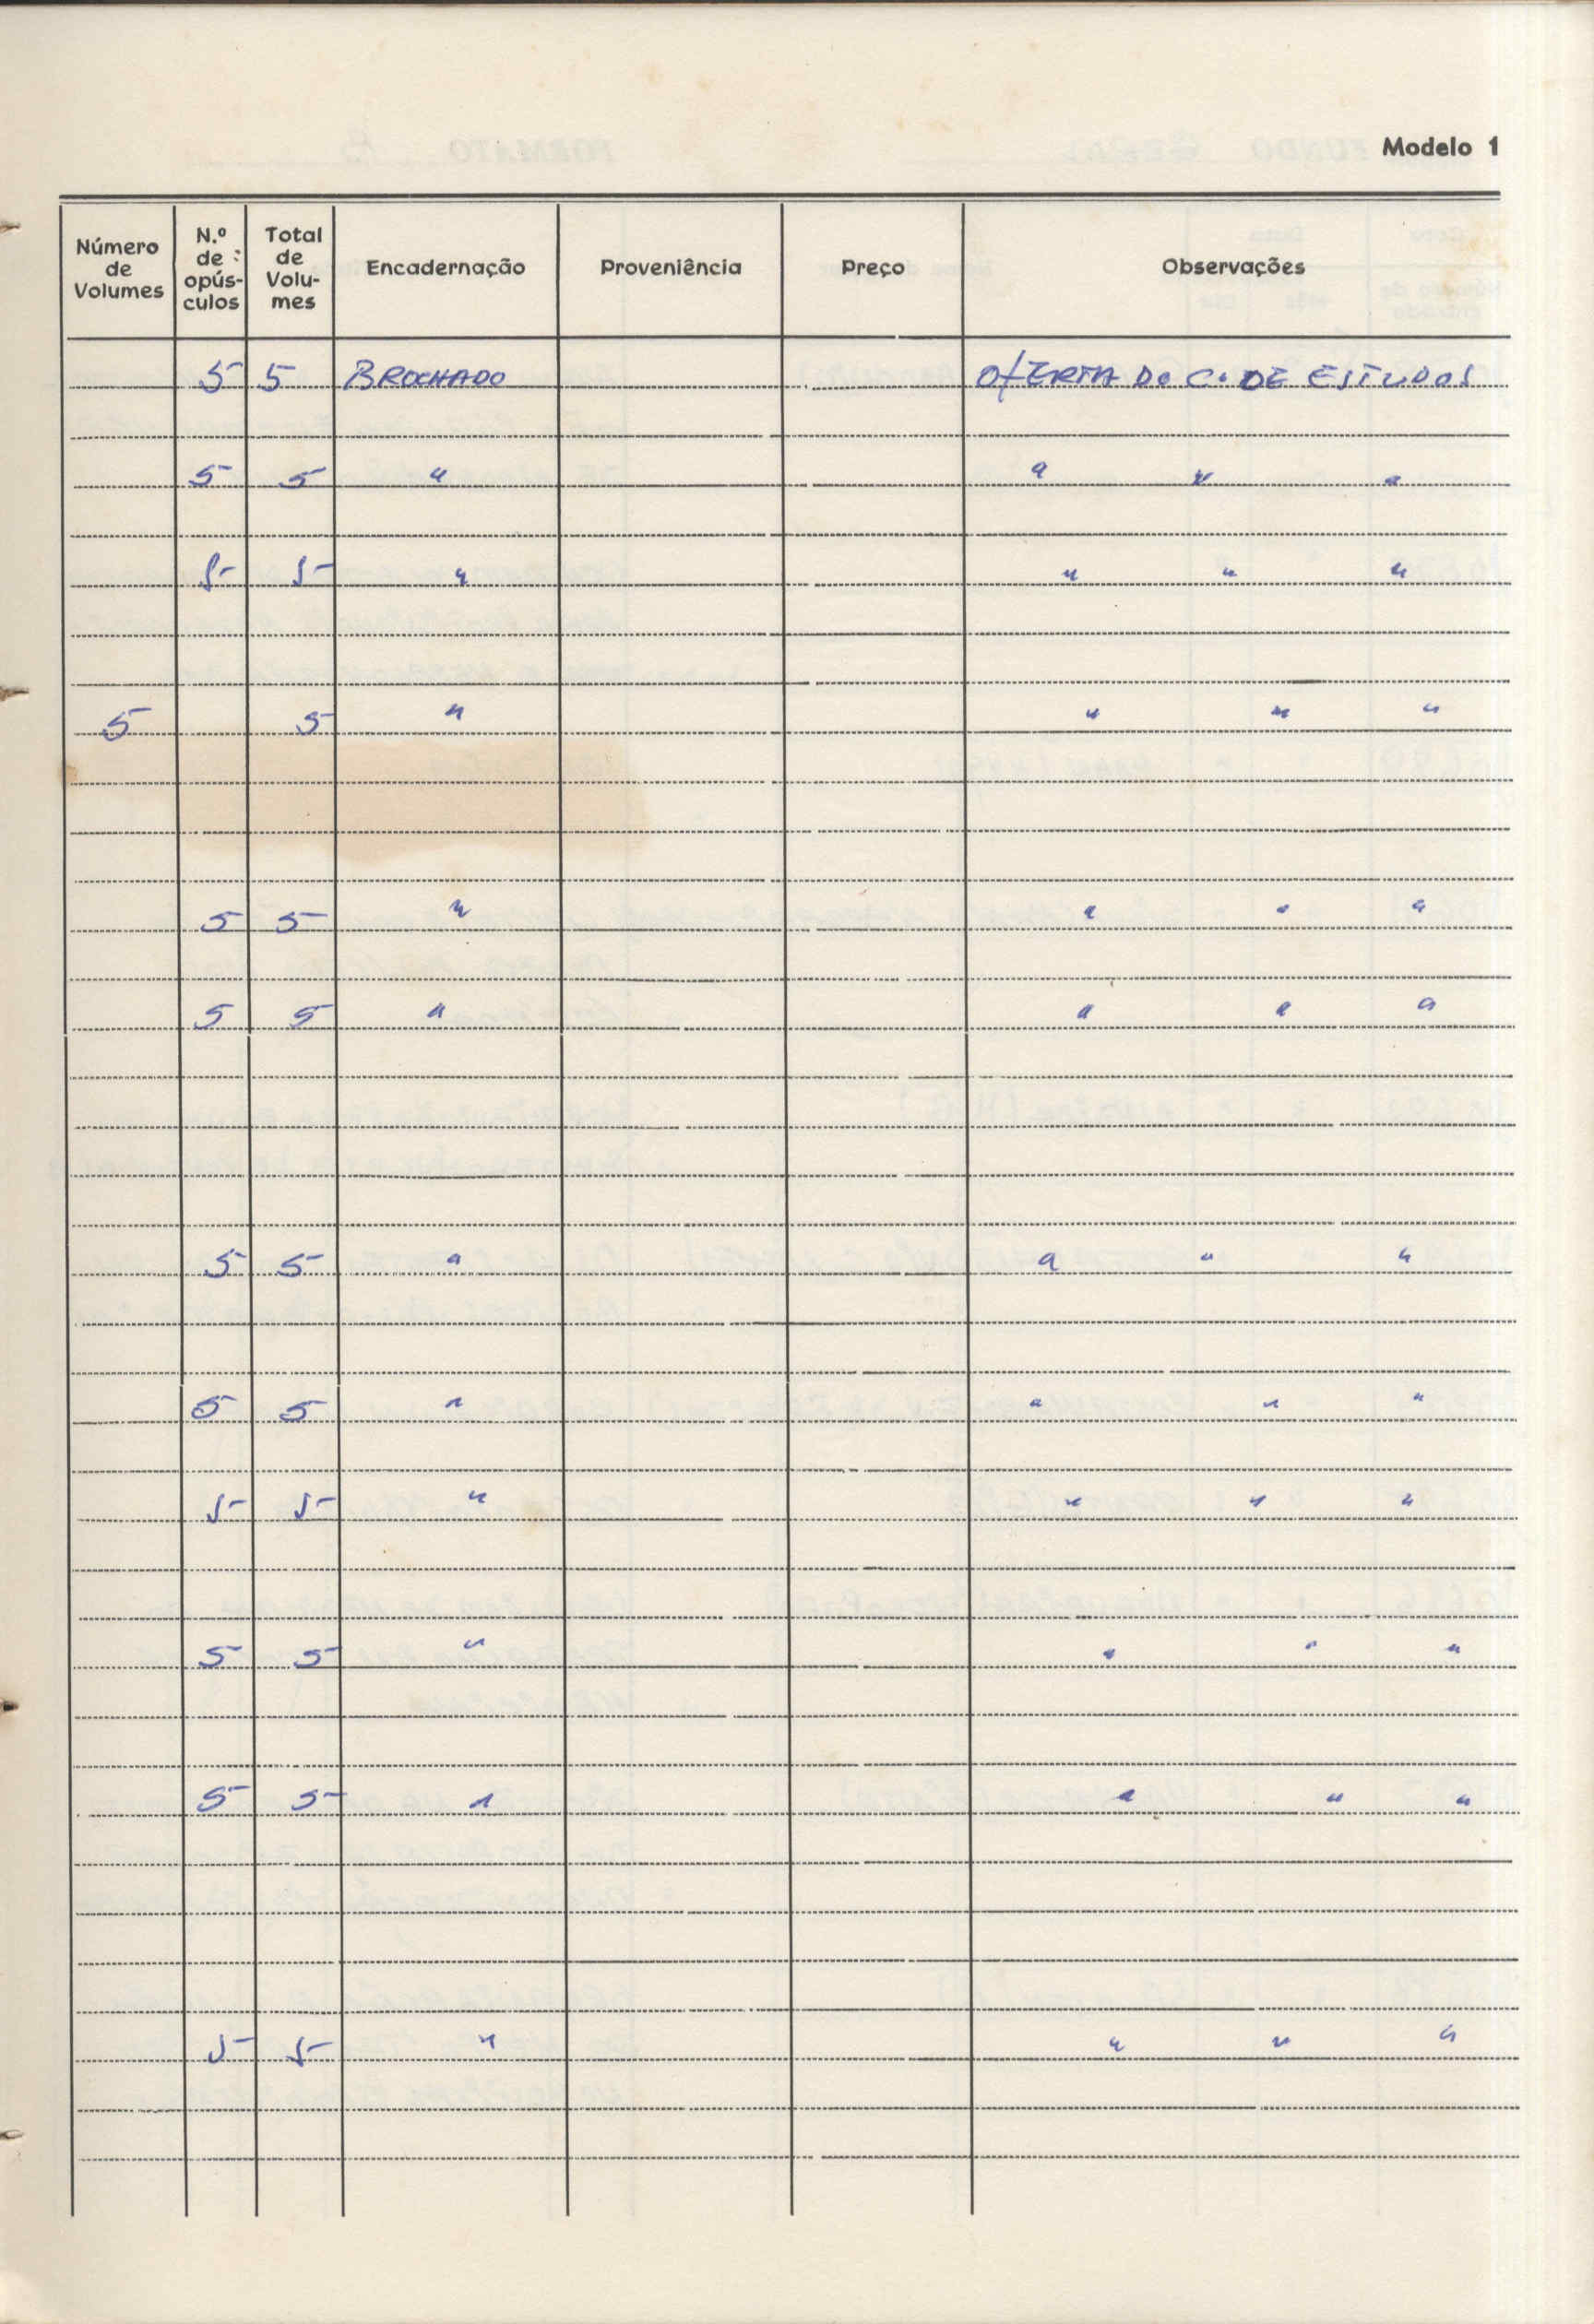 Modelo 1
Número de Volumes N.º de opúsculos Total de Volumes Encadernação Proveniência Preço Observações
5 5 BROCHADO OFERTA DO C. DE ESTUDOS
5 5 " " " "
5 5 " " " "
5 5 " " " "
5 5 " " " "
5 5 " " " "
5 5 " " " "
5 5 " " " "
5 5 " " " "
5 5 " " " "
5 5 " " " "
5 5 " " " "